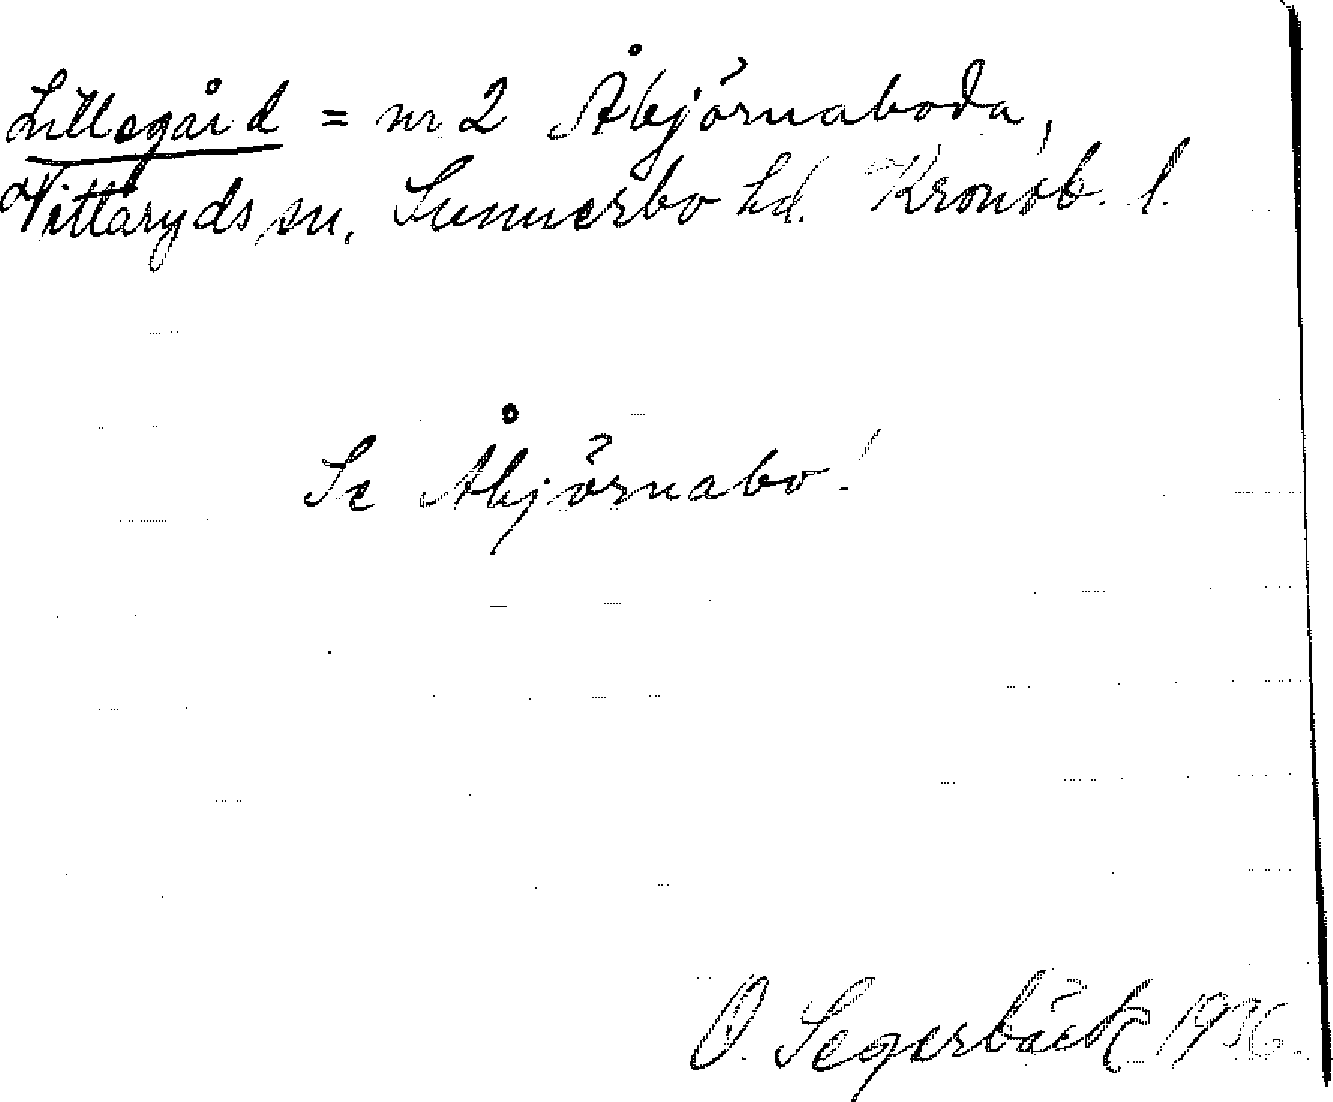 Lillegård = nr 2 Åbjörnaboda,
Vittaryds sn, Sunnerbo hd. Kronob. l.
Se Åbjörnabo!
O. Segerbäck 1936.